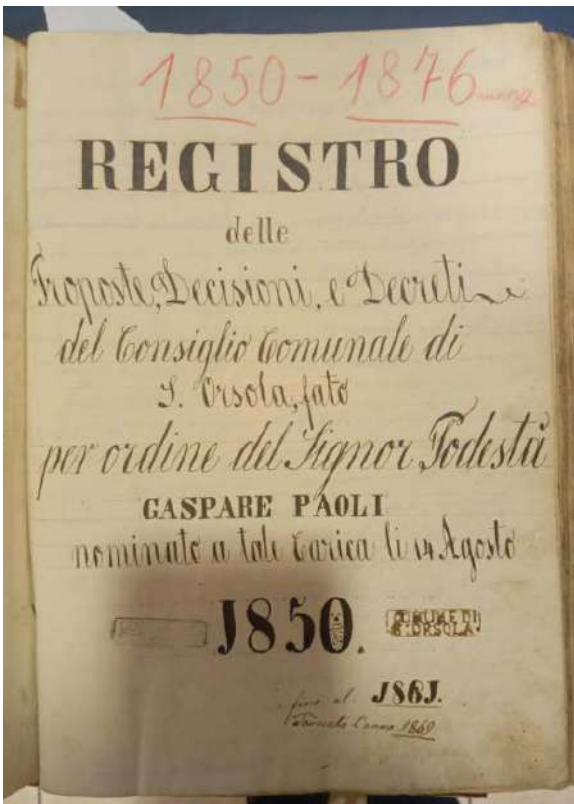 1850-1876
REGISTRO
delle
Proposte, Decisioni, e Decreti
del Consiglio Comunale di
S. Orsola, fato
per ordine del Signor Podestà
GASPARE PAOLI
nominato a tale Carica li 14 Agosto
1850.
COMUNE DI
S. ORSOLA
fino al 1861.
l'anno 1860